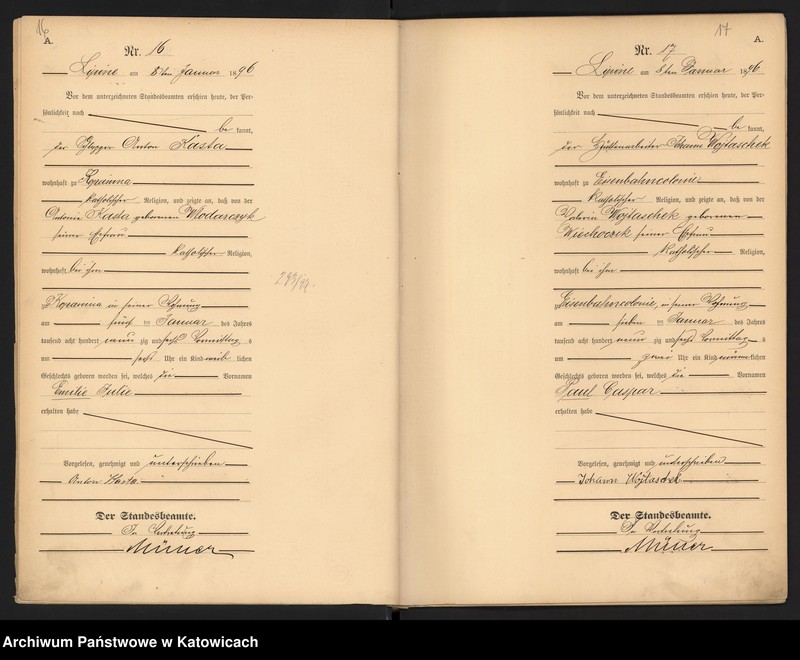 16
A.
Nr. 16
Lipine am 8ten Januar 1896
Vor dem unterzeichneten Standesbeamten erschien heute, der Per-
sönlichkeit nach
be kannt,
der Anton Kasta
wohnhaft zu Kopanina
katholischer Religion, und zeigte an, daß von der
Antonie Kasta geborenen Wlodarczyk
seiner Ehefrau
katholischer Religion,
wohnhaft bei ihm
zu Kopanina in seiner Wohnung
am fünf ten Januar des Jahres
tausend acht hundert neun zig und sechs Vormittags
um sechs Uhr ein Kind weib lichen
Geschlechts geboren worden sei, welches die Vornamen
Emilie Julie
erhalten habe
Vorgelesen, genehmigt und unterschrieben
Anton Kasta
Der Standesbeamte.
In Vertretung
243/94.
17
A.
Nr. 17
Lipine am 8ten Januar 1896
Vor dem unterzeichneten Standesbeamten erschien heute, der Per-
sönlichkeit nach
be kannt,
der Hüttenarbeiter Johann Wojtaschek
wohnhaft zu Eisenbahncolonie
katholischer Religion, und zeigte an, daß von der
Valerie Wojtaschek geborenen
Wiechoczek seiner Ehefrau
katholischer Religion,
wohnhaft bei ihm
zu Eisenbahncolonie, in seiner Wohnung
am sieben ten Januar des Jahres
tausend acht hundert neun zig und sechs Vormittags
um zwei Uhr ein Kind männ lichen
Geschlechts geboren worden sei, welches die Vornamen
Paul Caspar
erhalten habe
Vorgelesen, genehmigt und unterschrieben
Johann Wojtaschek
Der Standesbeamte.
In Vertretung
Archiwum Państwowe w Katowicach